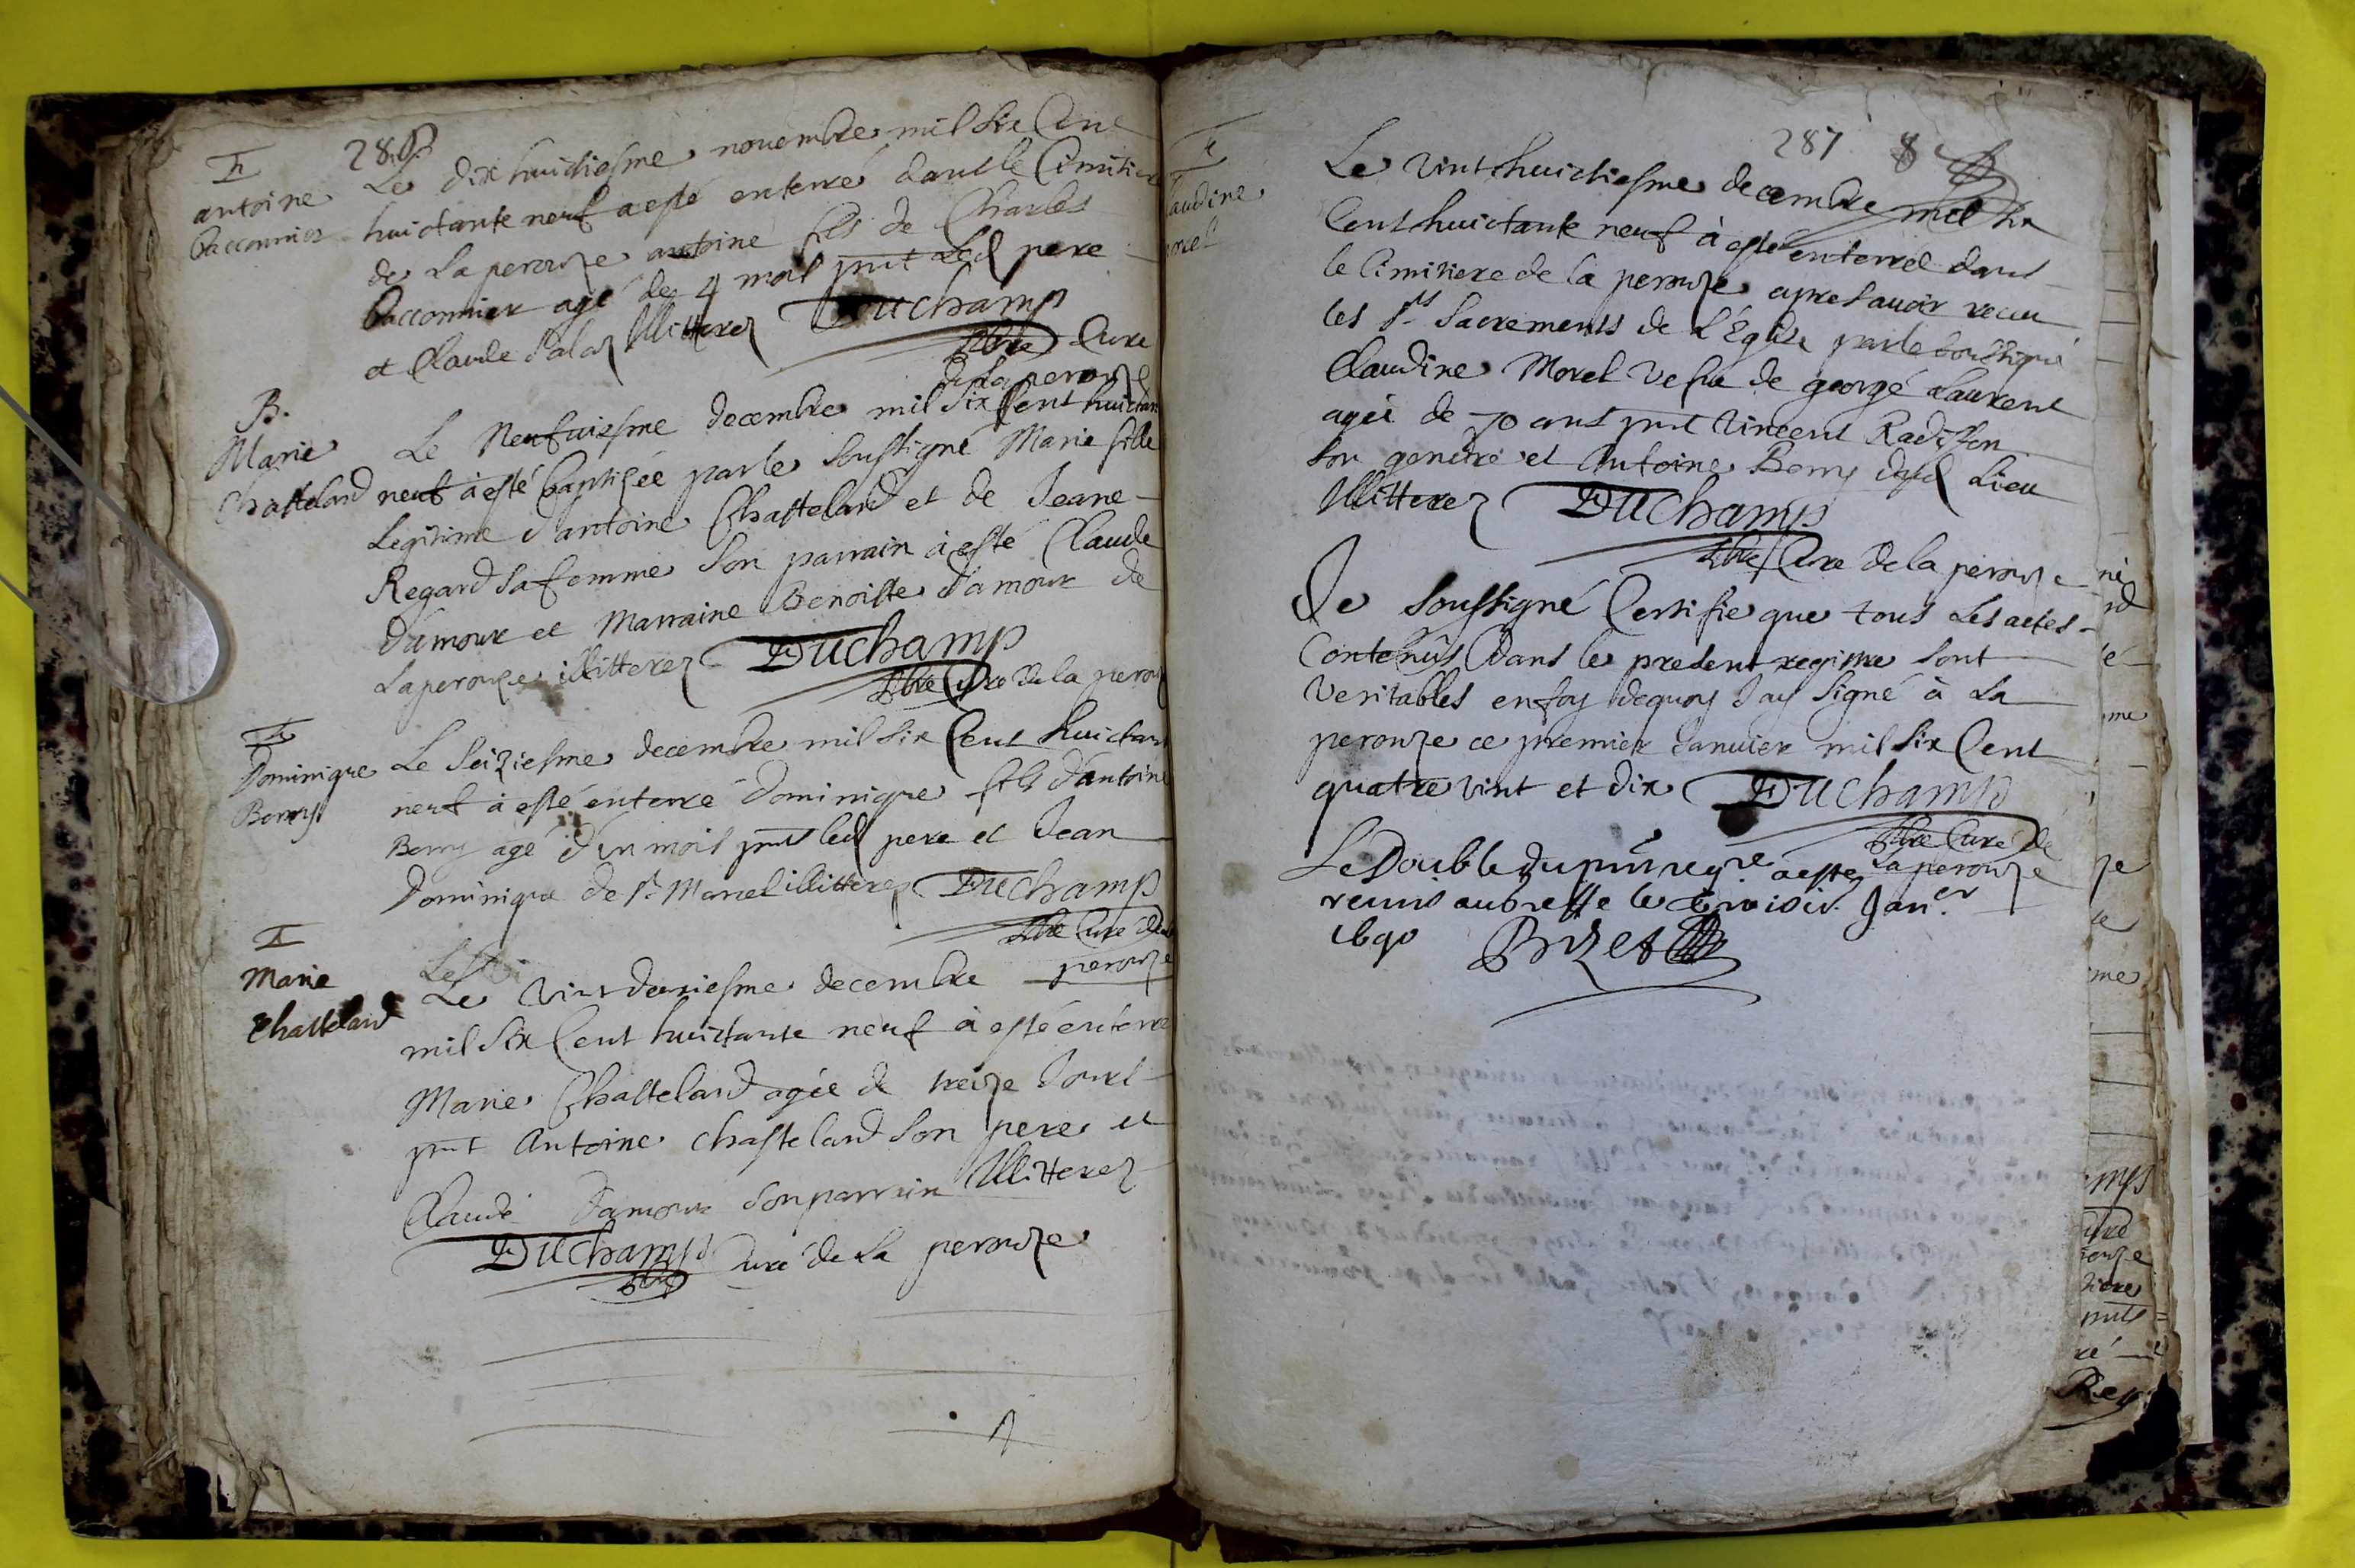 †
antoine
Bacconnier
Le dix huictiesme novembre mil six Cent
huictante neuf a esté enterré dans le Cimitiere
de La perouze antoine fils de Charles
Bacconnier agé de 4 mois pnt Led pere
et Claude illitterez DUChamp
pbre Curé
de La perouze
B.
Marie
Chastelard
Le Neufviesme decembre mil six Cent huictan
neuf à esté baptisée par le soussigné Marie fille
Legitime d'antoine Chastelard et de Jeane
Regard sa femme son parrain à esté Claude
Damour et Marraine Benoiste Damour de
Laperouze illitterez DUChamp
pbre Curé de la perouz
†
Dominique
Berry
Le seiziesme decembre mil six Cent huictant
neuf à esté enterré dominique fils d'antoine
Berry agé d'un mois pnts led pere et Jean
Dominique de st Marcel illitterez DUChamp
pbre Curé de la
perouze
†
Marie
Chastelard
Le vint deuxiesme decembre
mil six Cent huictante neuf à esté enterré
Marie Chastelard agée de treize Jours
pnt Antoine Chastelard son pere et
Claude Damour son parrain illitterez
DUChamp Curé de La perouze
pbre
287 8
†
laudine
orel
Le vint huictiesme decembre mil six
Cent huictante neuf à esté enterrée dans
le Cimitiere de la perouze apres avoir receu
les sts Sacrements de L'Eglise par le soussigné
Claudine Morel vefve de george Laurent
agée de 70 ans pnt Vincent Radisson
son gendre et Antoine Berry dud Lieu
illitterez DUChamp
pbre Curé de la perouze
Je soussigné Certifie que tous Les actes
Contenûs dans le present registre sont
veritables en foy dequoy J'ay signé à La
perouze ce premier Janvier mil six Cent
quatre vint et dix DUChamp
pbre Curé de
La perouze
Le Double du pnt regre a esté
remis au greffe le Janer
1690 Brizet